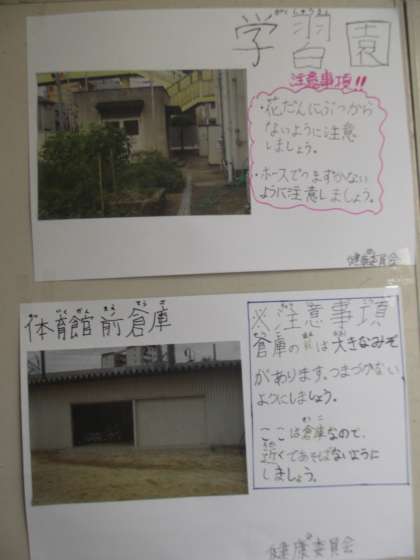 学習園
がくしゅうえん
注意事項!!
・花だんにぶつから
ないように注意
しましょう。
・ホースでつまずかない
ように注意しましょう。
健康委員会
体育館前倉庫
たいいくかんまえそうこ
※注意事項
倉庫の前は大きなみぞ
があります。つまづかない
ようにしましょう。
ここは倉庫なので、
近くであそばないように
しましょう。
健康委員会